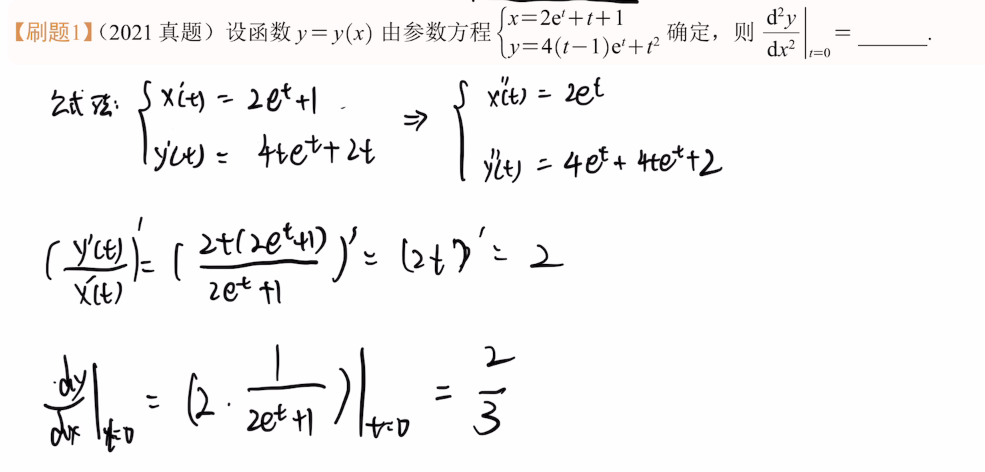 【刷题1】(2021 真题) 设函数 y=y(x) 由参数方程 {x=2eᵗ+t+1 y=4(t−1)eᵗ+t² 确定，则 d²y/dx²|ₜ₌₀ = ______.
公式法: {x'(t) = 2eᵗ+1 ⇒ {x''(t) = 2eᵗ
y'(t) = 4teᵗ+2t y''(t) = 4eᵗ+4teᵗ+2
(y'(t)/x'(t))' = (2t(2eᵗ+1)/2eᵗ+1)' = (2t)' = 2
dy/dx|ₜ₌₀ = (2·1/2eᵗ+1)|ₜ₌₀ = 2/3